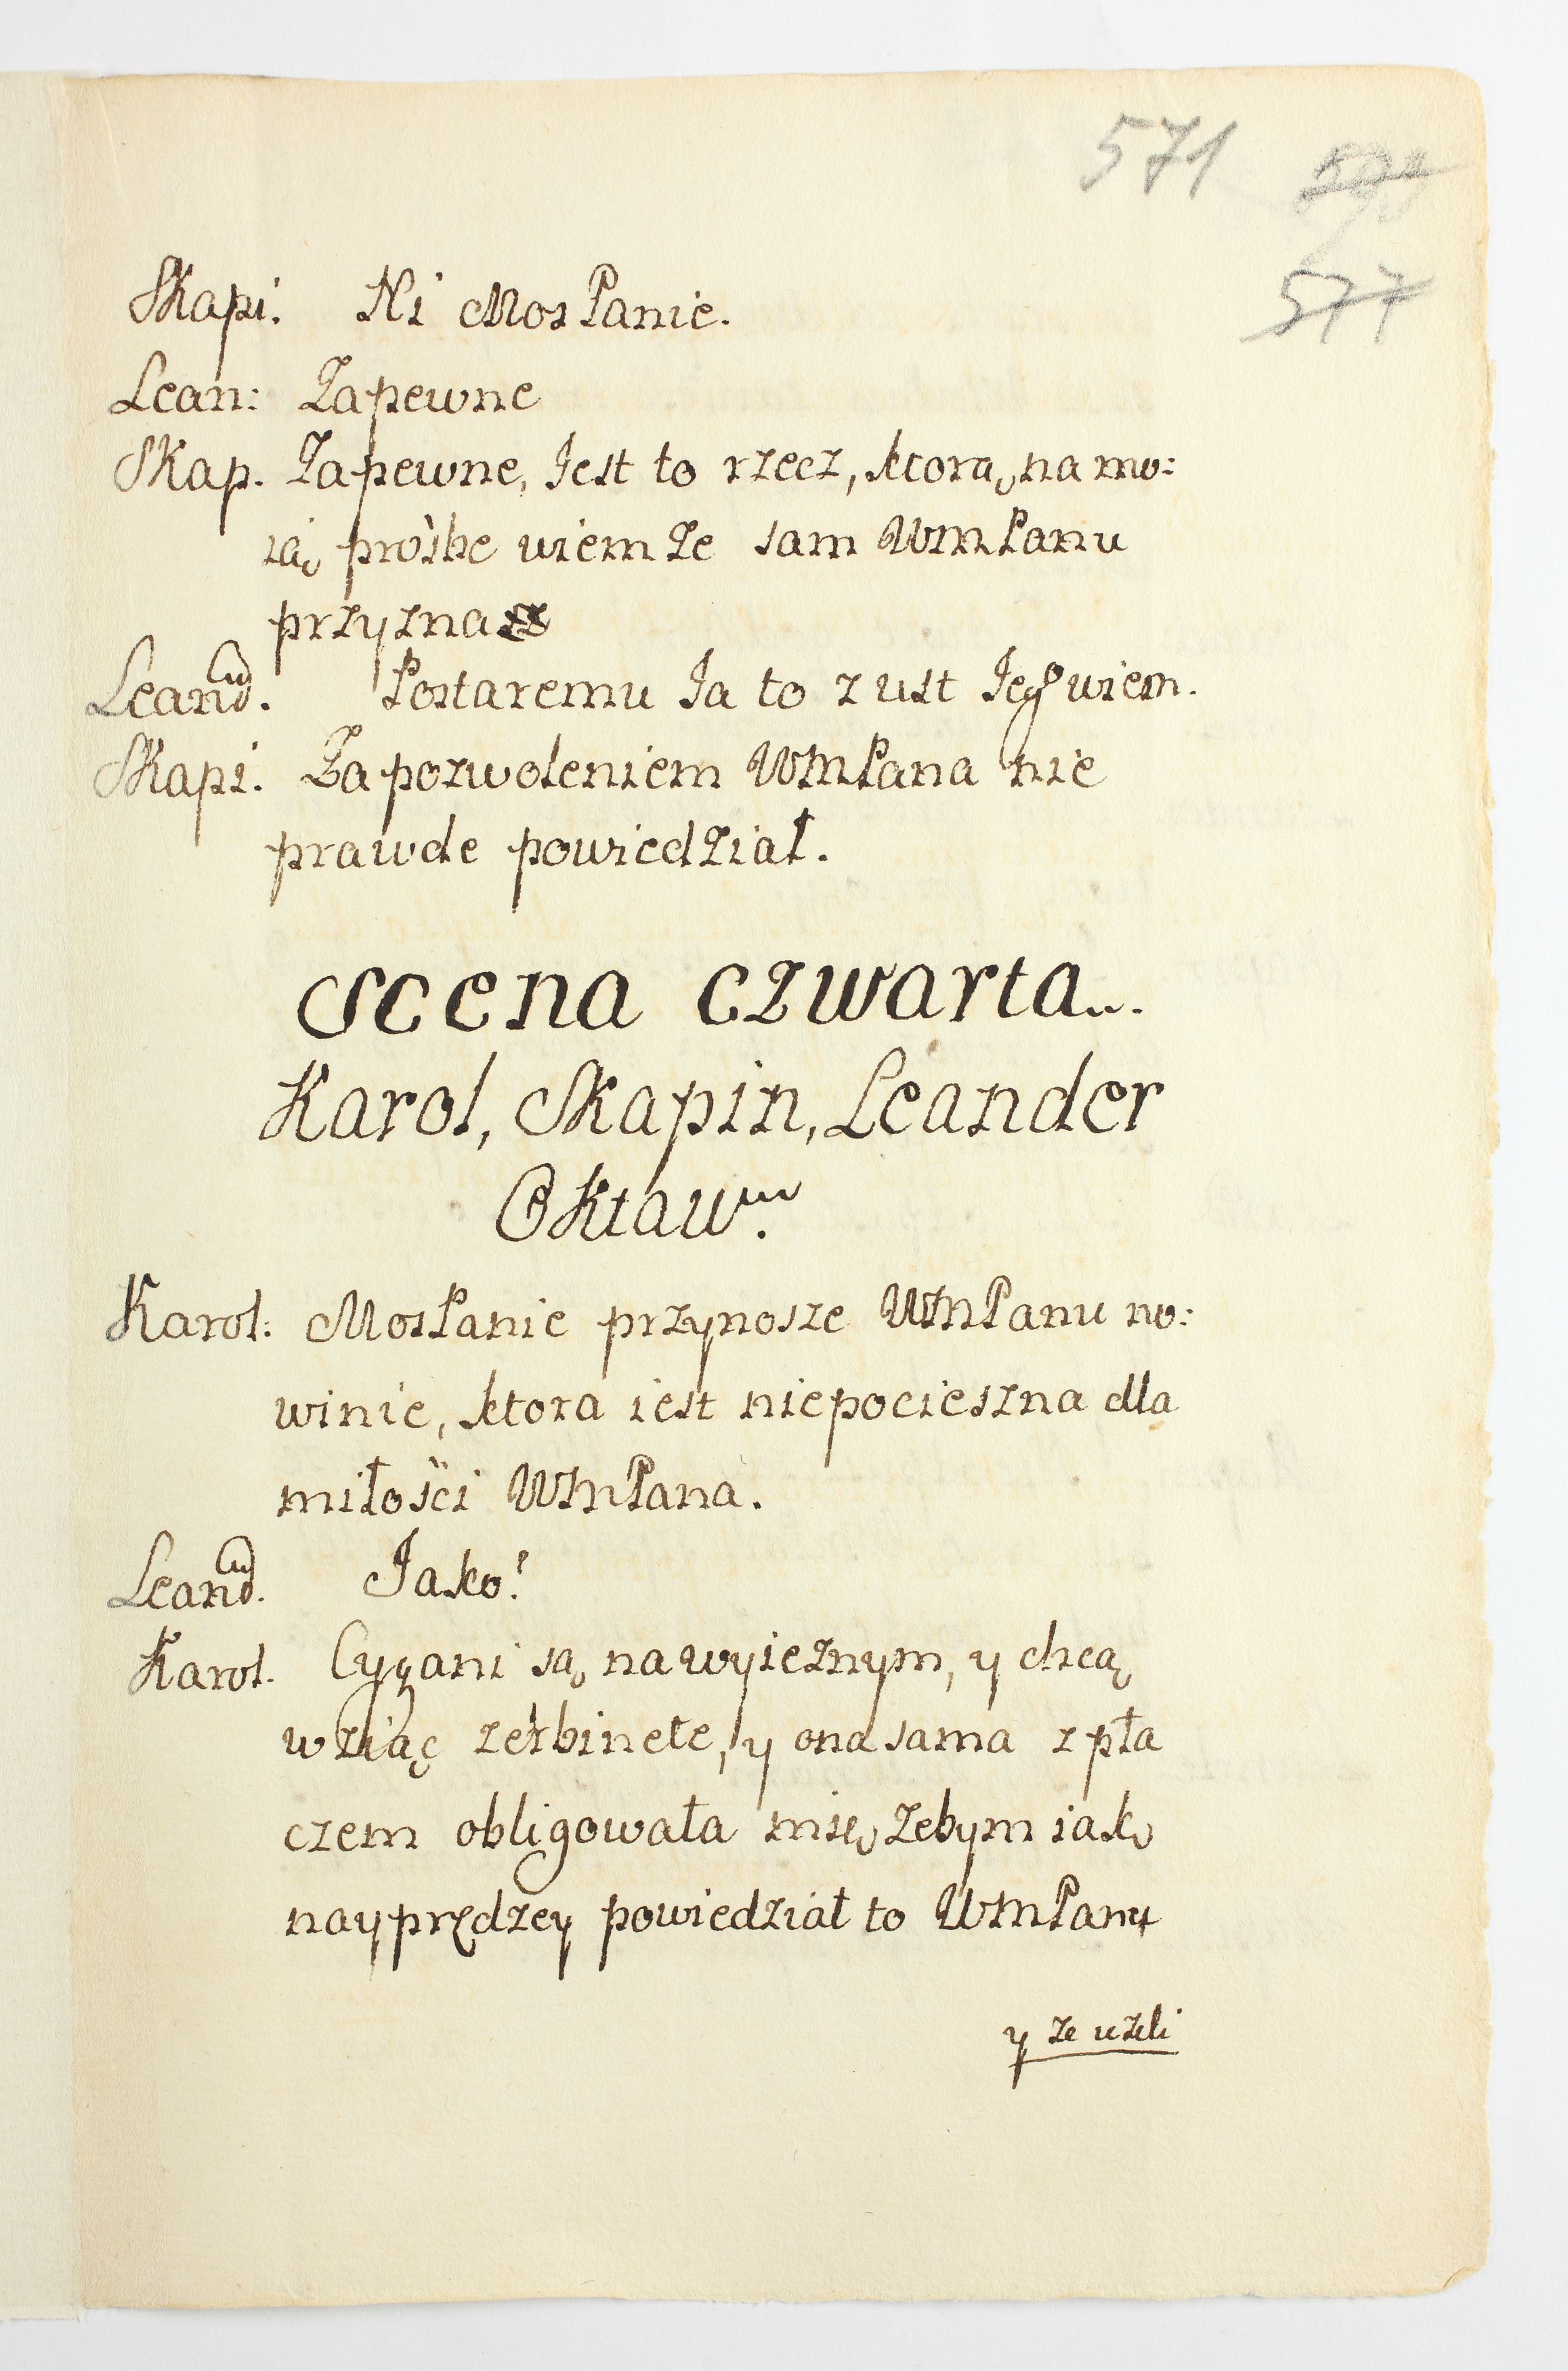 571
577
Skapi. Ni Mos Panie.
Lean: Zapewne
Skap. Zapewne, Jest to rzecz, ktorą na mo:
ią prośbe wiem że sam WMPanu
przyzna
Leand. Postaremu Ja to z ust Jego wiem.
Skapi. Za pozwoleniem WMPana nie
prawde powiedział.
Scena czwarta...
Karol, Skapin, Leander
Oktaw.
Karol: MosPanie przynosze WMPanu no:
winie, ktora iest niepocieszna dla
miłości WMPana.
Leand. Jako?
Karol. Cygani są na wyieznym, y chcą
wziąć zerbinete, y ona sama z pła
czem obligowała mię żebym iak
nayprędzey powiedział to WMPanu
y że ieżli